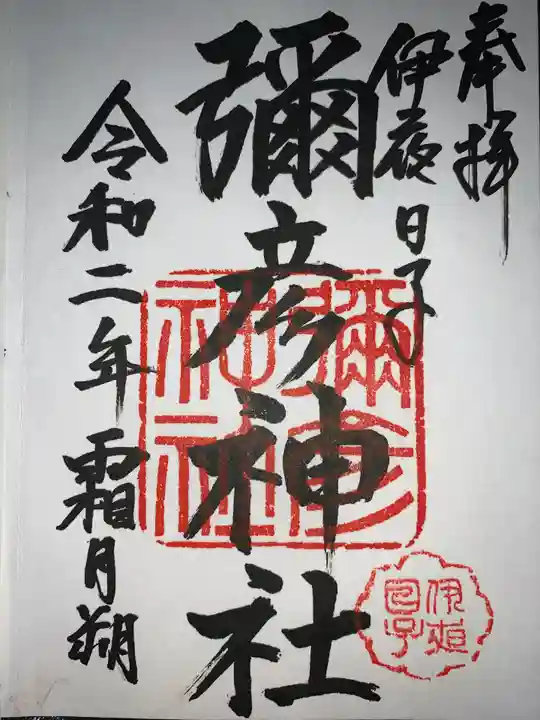 奉拝
伊夜日子
彌彦神社
令和二年霜月朔
彌彦神社
伊夜日子